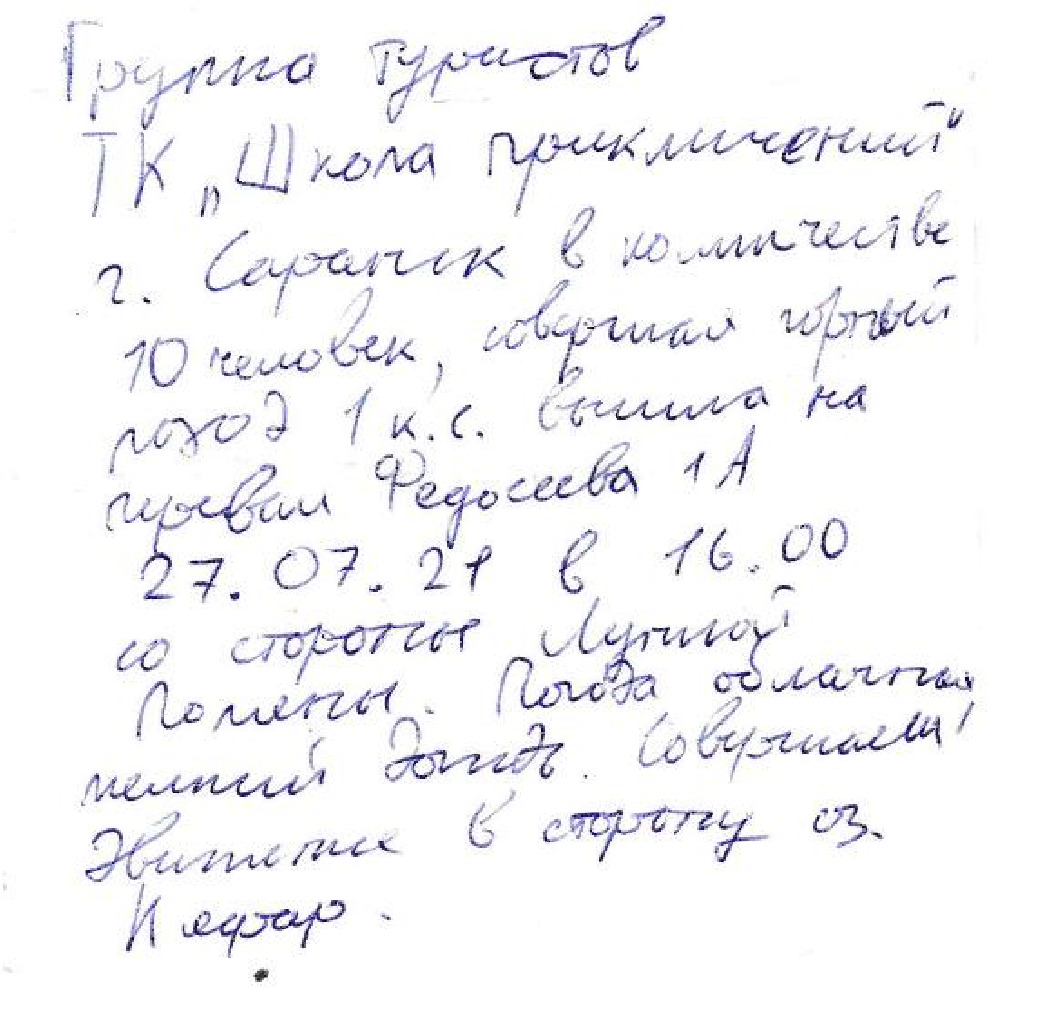 Группа туристов
ТК „Школа приключений"
г. Саранск в количестве
10 человек, совершая горный
поход 1 к.с. вышла на
перевал Федосеева 1А
27.07.21 в 16.00
со стороны Лунной
Поляны. Погода облачная
мелкий дождь. Совершаем
движение в сторону оз.
Кяфар.